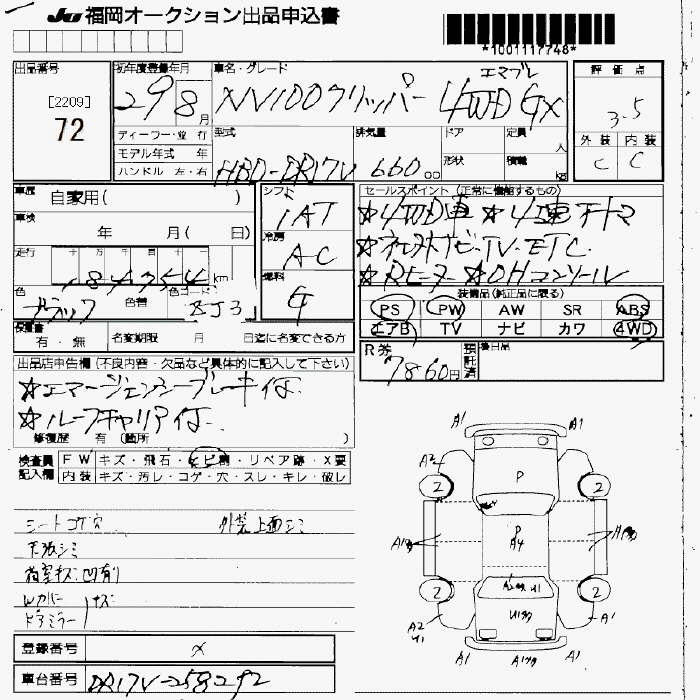 JU 福岡オークション出品申込書
*1001117748*
出品番号
[2209]
72
初年度登録年月
29 8 月
車名・グレード
エマブレ
NV100クリッパー 4WD GX
評価点
3.5
外装 内装
C C
ディーラー・並行
モデル年式 年
ハンドル 左・右
型式
HBD-DR17V
排気量
660 cc
ドア
形状
定員 人
積載 kg
車歴
自家用( )
車検
年 月( 日)
走行
十 万 千 百 十 一
184,754 km
色
ブラック
色替
色コード
ZJ3
シフト
iAT
冷房
AC
燃料
G
セールスポイント (正常に機能するもの)
☆4WD車 ☆4速オートマ
☆社外ナビ・TV・ETC
☆Rヒーター ☆OHコンソール
装備品(純正品に限る)
PS PW AW SR ABS
エアB TV ナビ カワ 4WD
保証書
有・無
名変期限 月 日迄に名変できる方
R券
7860円
預託済
後日品
出品店申告欄(不良内容・欠品など具体的に記入して下さい)
☆エマージェンシーブレーキ付
☆ルーフキャリア付
修復歴 有 (箇所 )
検査員記入欄
FW キズ・飛石・ヒビ割・リペア跡・X要
内装 キズ・汚レ・コゲ・穴・スレ・キレ・破レ
シートコゲ穴 外装上面シミ
天張シミ
荷室キズ凹有り
キズ
ドアミラー
A1
A1
A2
P
2
2
P
A4
2
2
A2
U1
A1
A1
A1
登録番号
メ
車台番号
DR17V-258292